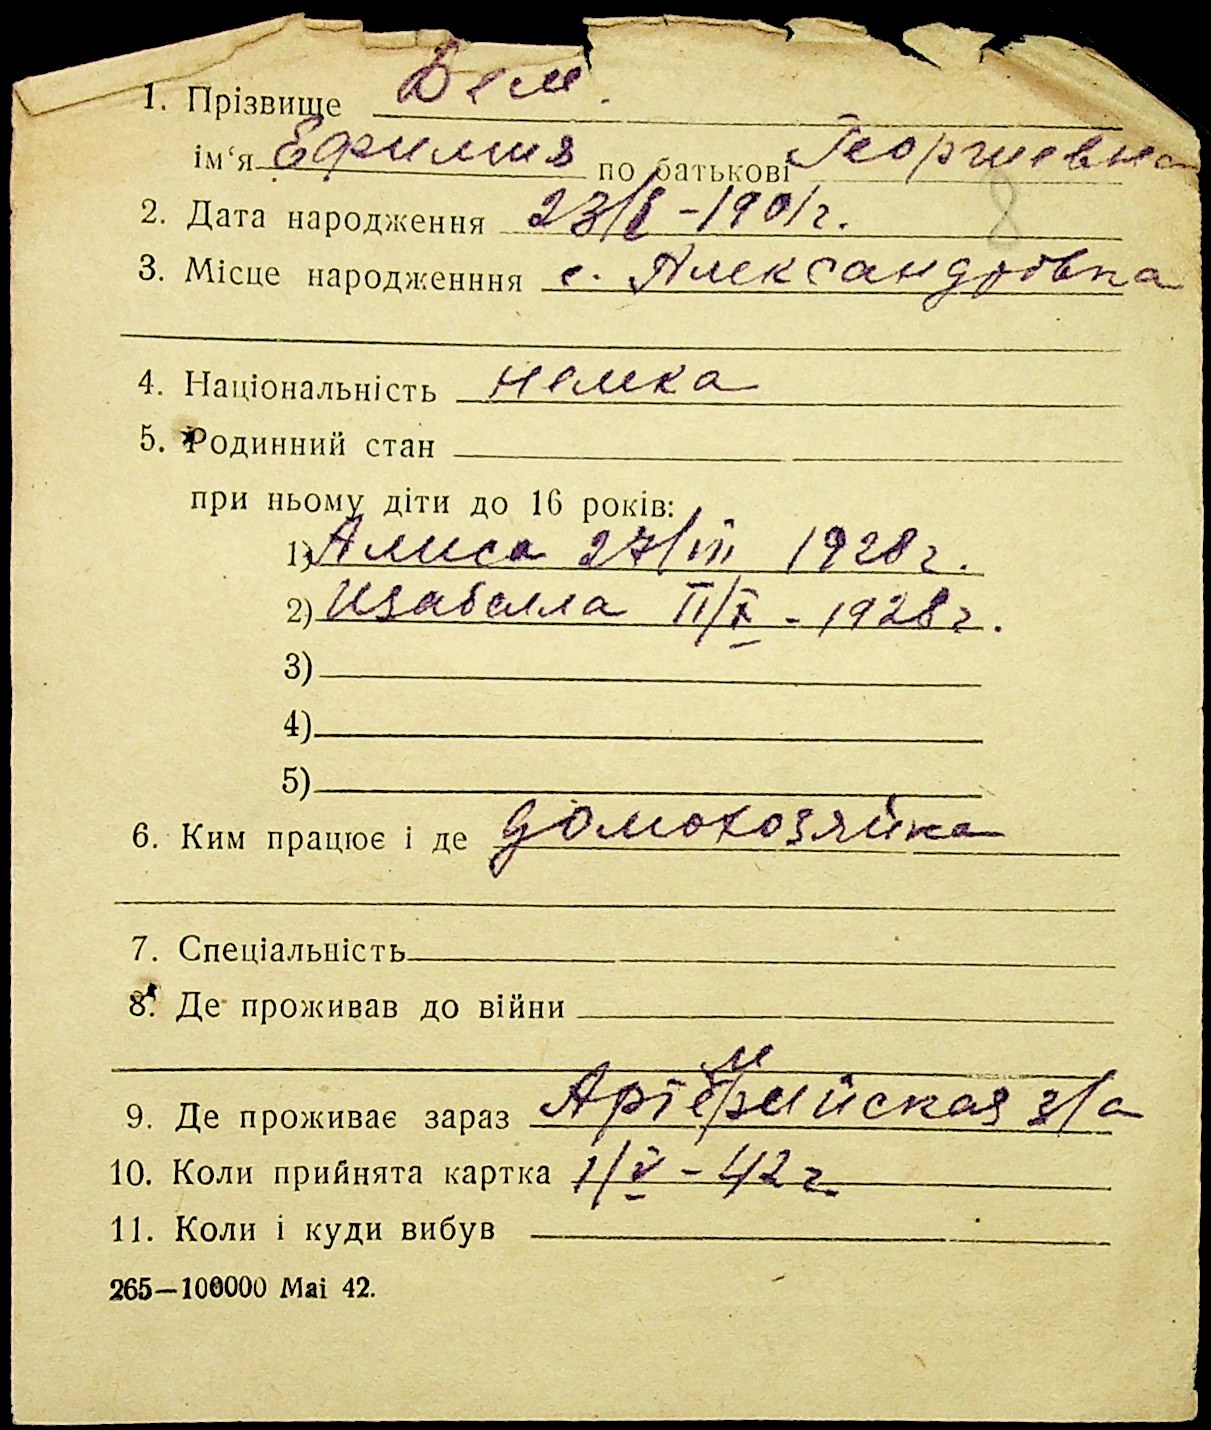 1. Прізвище Дем.
ім‘я Ефилия по батькові Георгиевна
8
2. Дата народження 23/I – 1901 г.
3. Місце народженння с. Александровка
4. Національність немка
5. Родинний стан
при ньому діти до 16 років:
1) Алиса 27/VII 1928 г.
2) Изабелла II/X – 1928 г.
3)
4)
5)
6. Ким працює і де домохозяйка
7. Спеціальність
8. Де проживав до війни
9. Де проживає зараз 3/а
10. Коли прийнята картка 1/V – 42 г.
11. Коли і куди вибув
265—100000 Mai 42.